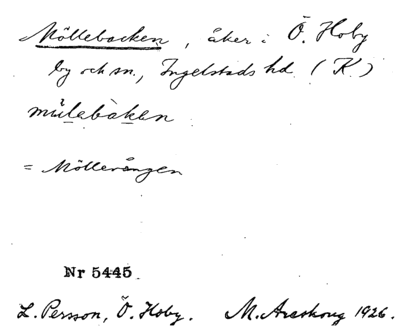 Möllebacken, åker i Ö. Hoby
by och sn., Ingelstads hd (K)
mülebàken
= Möllerången
Nr 5445.
L. Persson, Ö. Hoby. M. Areskoug 1926.